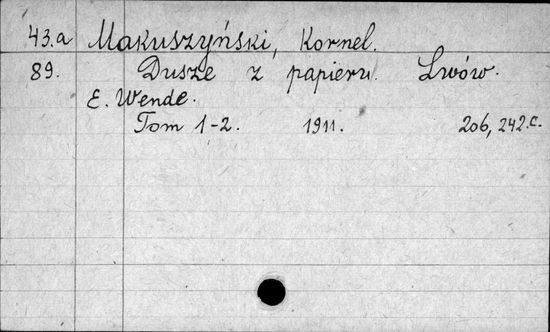 43.a Makuszyński, Kornel.
89. Dusze z papieru. Lwów.
E. Wende.
Tom 1-2. 1911. 206, 242.c.